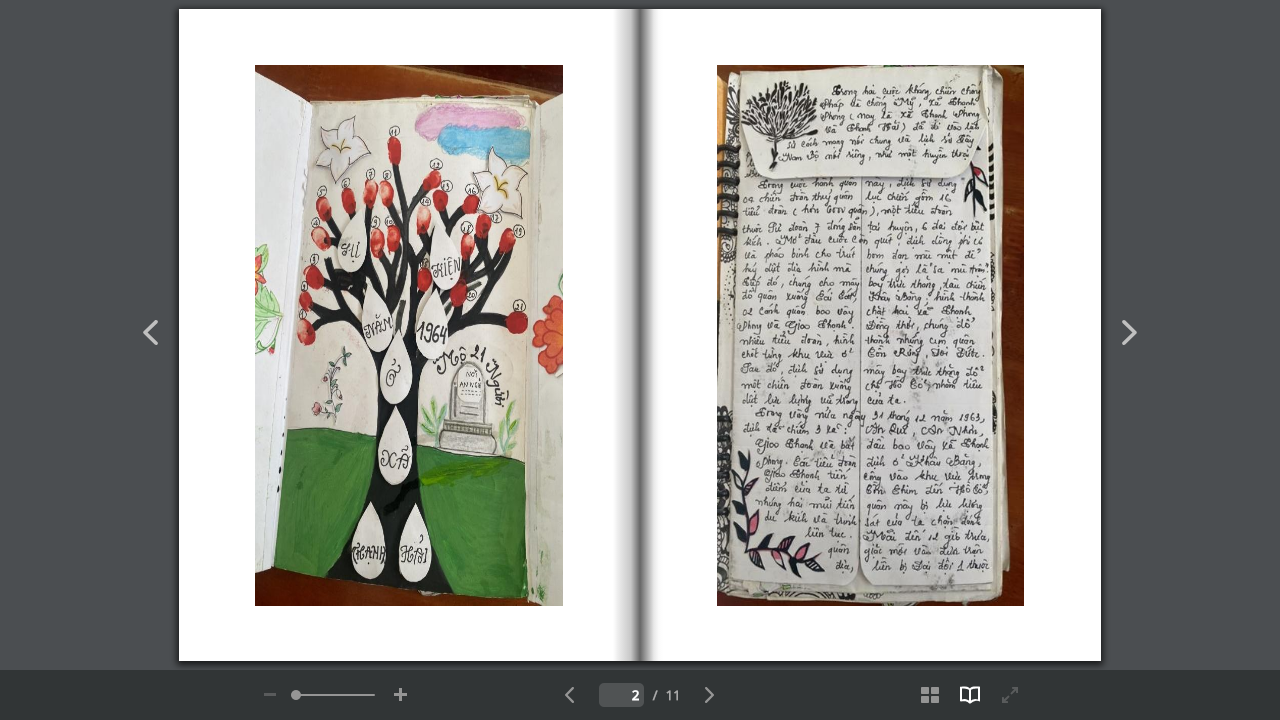 11
12
7
8
6
5
13
16
14
4
9
10
17
18
15
VỤ
3
KIỆN
20
21
NĂM
1964
Mộ 21 Người
Ở
NƠI
AN NGHỈ
XÃ
THẠNH
HẢI
Trong hai cuộc kháng chiến chống
Pháp và chống Mỹ, xã Thạnh
Phong (nay là xã Thạnh Phong
và Thạnh Hải) đã đi vào lịch
sử cách mạng nói chung và lịch sử Tây
Nam Bộ nói riêng, như một huyền thoại
Trong cuộc hành quân này, địch sử dụng
04 chiến đoàn thủy quân lục chiến gồm 16
tiểu đoàn (hơn quân), một tiểu đoàn
thuộc Sư đoàn 7 đóng sẵn tại huyện, 6 đại đội biệt
kích. Mở đầu cuộc càn quét, địch dùng phi cơ
và pháo binh cho trút bom đạn mù mịt để
hủy diệt địa hình mà chúng gọi là "sa mù trận".
Tiếp đó, chúng cho máy bay trực thăng, tàu chiến
đổ quân xuống Cái Cát, Khâu Băng, hình thành
02 cánh quân bao vây chặt hai xã Thạnh
Phong và Giao Thạnh. Đồng thời, chúng đổ
nhiều tiểu đoàn, hình thành những cụm quân
chốt từng khu vực ở Cồn Rừng, Đức.
Sau đó, địch sử dụng máy bay trực thăng đổ
một chiến đoàn xuống chợ Hồ Cỏ, nhằm tiêu
diệt lực lượng vũ trang của ta.
Trong vòng nửa ngày 31 tháng 12 năm 1963,
địch đã chiếm 3 xã: An Quí, An Nhơn,
Giao Thạnh và bắt đầu bao vây xã Thạnh
Phong. Các tiểu đoàn địch ở Khâu Băng,
Giao Thạnh tiến công vào khu vực trung
điểm của ta từ Cồn Chim đến Hồ Cỏ,
nhưng hai mũi tiến quân này bị lực lượng
du kích và trinh sát của ta chặn đánh
liên tục. Mãi đến 12 giờ trưa,
quân giặc mới vào được trận
địa, liền bị Đại đội 1 thuộc